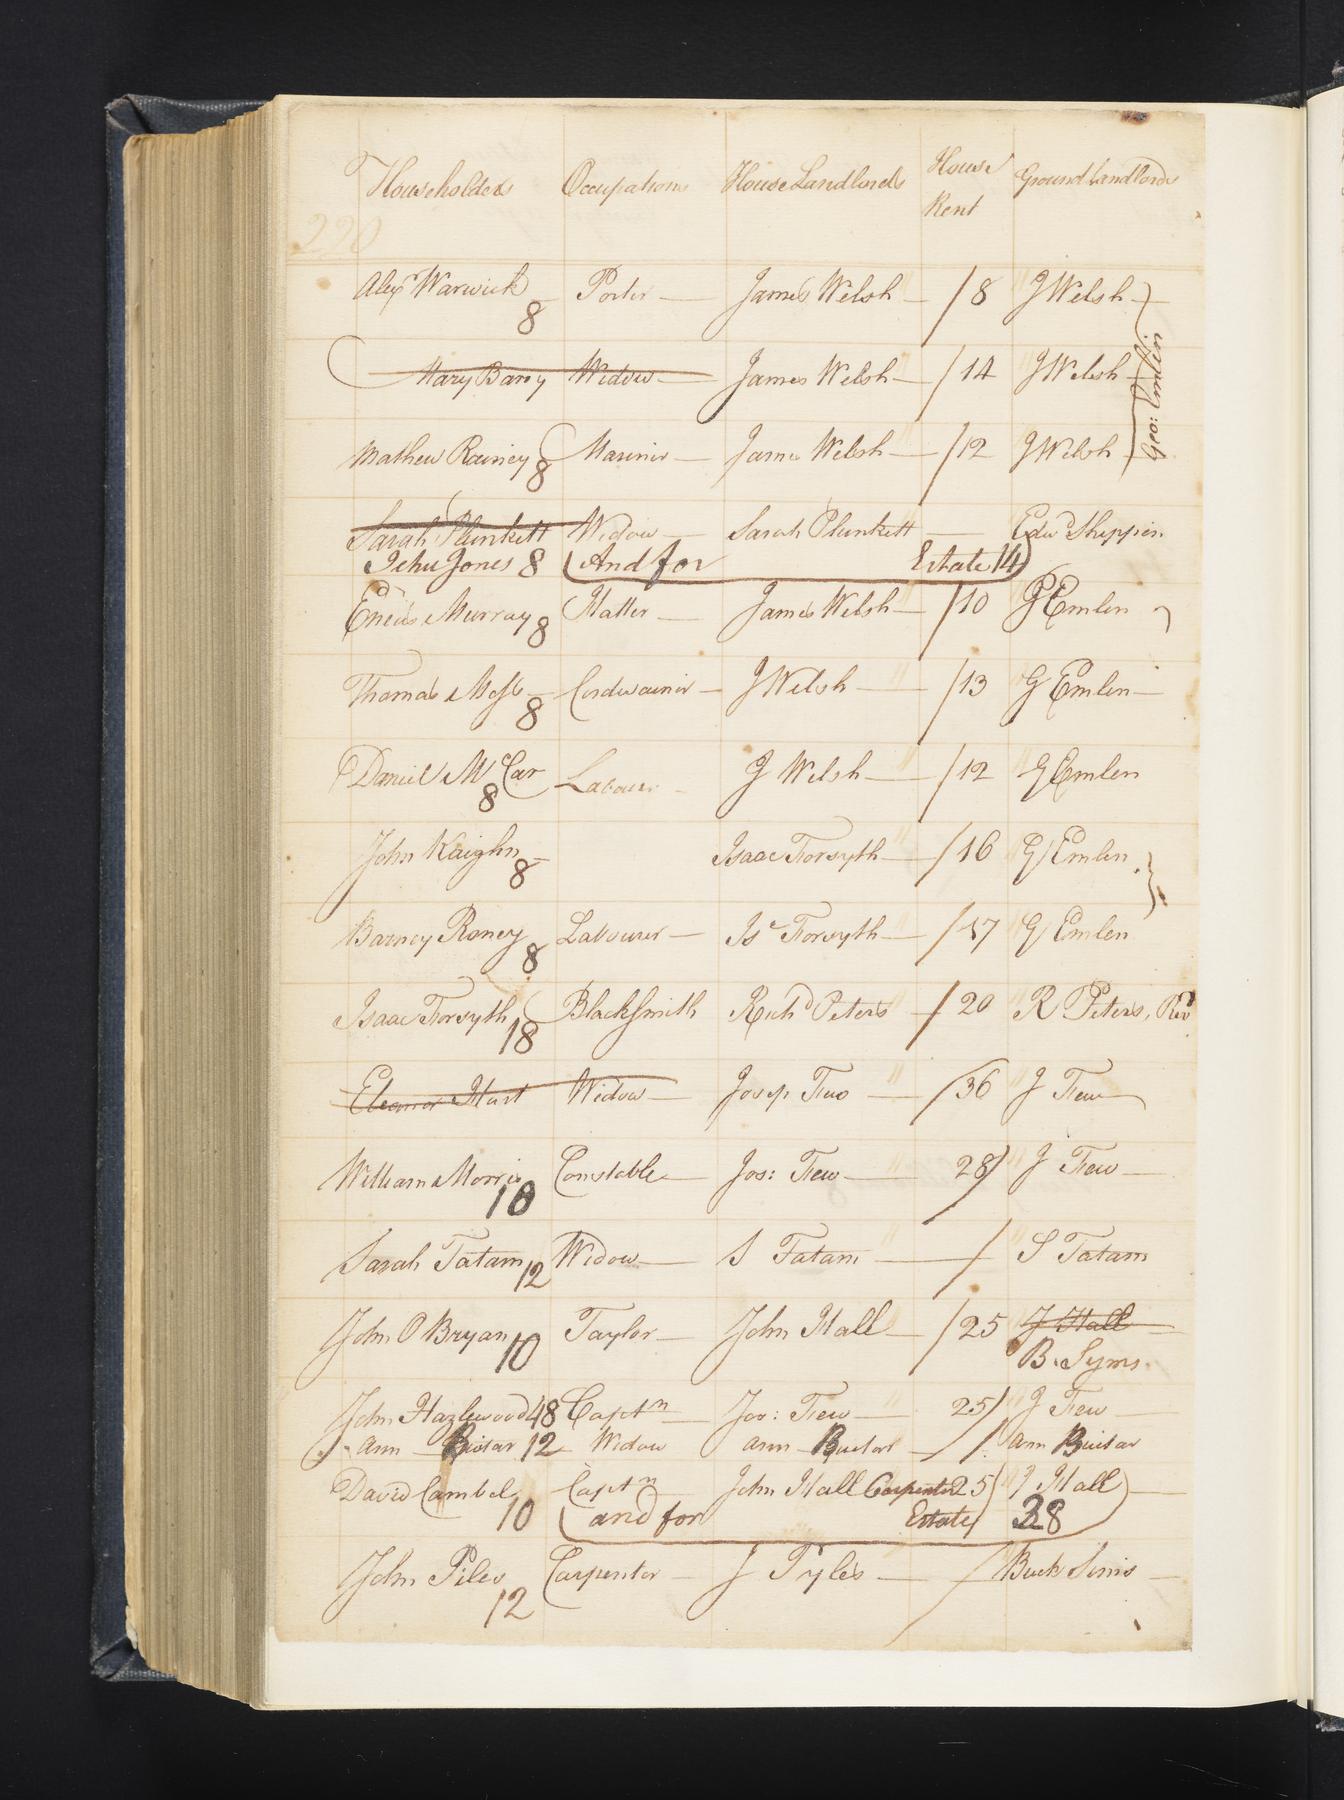 Householders Occupations House Landlords House Rent Ground Landlords
220
Alexr Warwick 8 Porter James Welsh / 8 J Welsh
Geo: Emlin
Mary Barry Widow James Welsh / 14 J Welsh
Mathew Rainey 8 Mariner James Welsh / 12 J Welsh
Sarah Plunkett Widow Sarah Plunkett Edwd Shippen
Jehu Jones 8 (And for Estate 14)
Eneas Murray 8 Hatter James Welsh / 10 G Emlen
Thomas Moss 8 Cordwainer J Welsh / 13 G Emlen
Daniel McCar 8 Labourer J Welsh / 12 G Emlen
John Kaighn 8 Isaac Forsyth / 16 G Emlen
Barney Roney 8 Labourer Isc Forsyth / 17 G Emlen
Isaac Forsyth 18 Blacksmith Richd Peters / 20 R Peters, Revd
Eleanor Hart Widow Josep Tew / 36 J Tew
William Morris 10 Constable Jos: Tew 28/ J Tew
Sarah Tatam 12 Widow S Tatam / S Tatam
John O Bryan 10 Taylor John Hall / 25 J Hall
B. Syms
John Hazlewood 48 Captn Jos: Tew 25/ J Tew
Ann Bistar 12 Widow Ann Bustar / Ann Buistar
David Cambel 10 Captn John Hall Carpenter 25/ J Hall
(and for Estate/ 38
John Piles 12 Carpenter J Pyles / Buck Sims